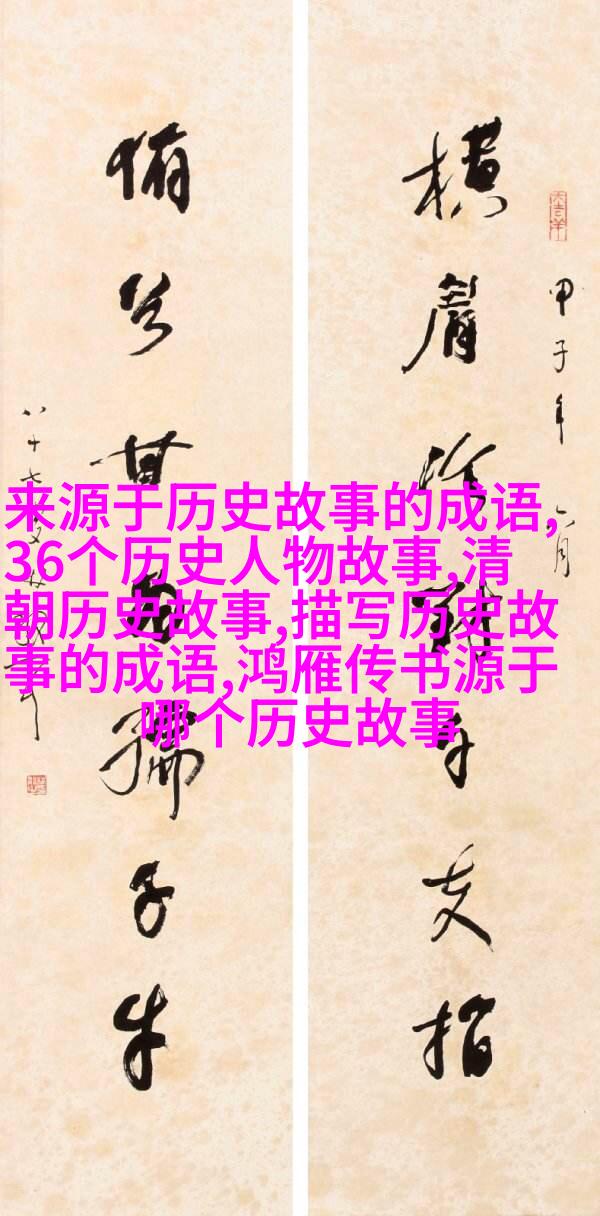 甲子年六月
横眉冷对千夫指
俯首甘为孺子牛
八十七叟
来源于历史故事的成语,
36个历史人物故事,清
朝历史故事,描写历史故
事的成语,鸿雁传书源于
哪个历史故事